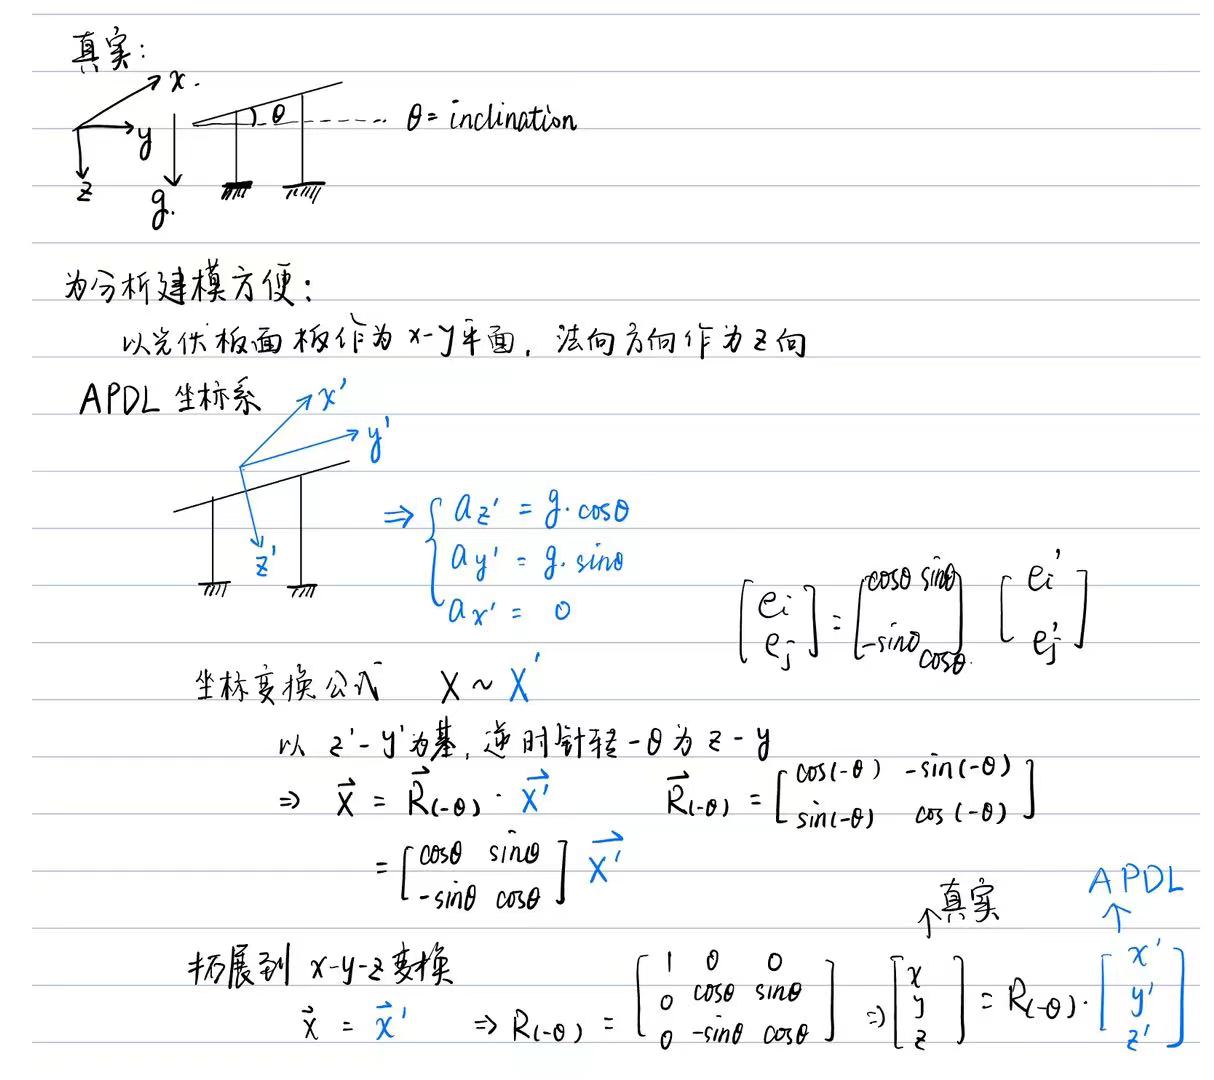 真实:
x.
y
z
g.
θ
θ = inclination
为分析建模方便:
以光伏板面板作为 x-y平面, 法向方向作为 z 向
APDL 坐标系
x'
y'
z'
⇒ { a_z' = g·cosθ
a_y' = g·sinθ
a_x' = 0
[ e_i e_j ] = [ cosθ sinθ -sinθ cosθ ] [ e_i' e_j' ]
坐标变换公式 X ~ X'
以 z'-y'为基, 逆时针转 -θ 为 z-y
⇒ X = R(-θ) · X' R(-θ) = [ cos(-θ) -sin(-θ) sin(-θ) cos(-θ) ]
= [ cosθ sinθ -sinθ cosθ ] X'
↑真实
APDL ↑
拓展到 x-y-z变换
x = x' ⇒ R(-θ) = [ 1 0 0 0 cosθ sinθ 0 -sinθ cosθ ] ⇒ [ x y z ] = R(-θ)· [ x' y' z' ]